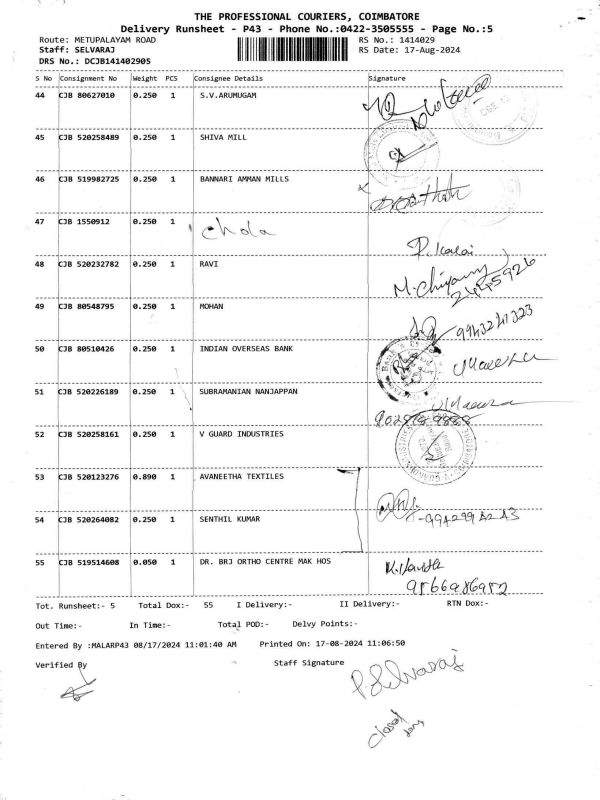 THE PROFESSIONAL COURIERS, COIMBATORE
Delivery Runsheet - P43 - Phone No.:0422-3505555 - Page No.:5
Route: METUPALAYAM ROAD RS No.: 1414029
Staff: SELVARAJ RS Date: 17-Aug-2024
DRS No.: DCJB141402905
S No Consignment No Weight PCS Consignee Details Signature
44 CJB 80627010 0.250 1 S.V.ARUMUGAM
45 CJB 520258489 0.250 1 SHIVA MILL
46 CJB 519982725 0.250 1 BANNARI AMMAN MILLS
47 CJB 1550912 0.250 1 chola
P. Kalai
48 CJB 520232782 0.250 1 RAVI
49 CJB 80548795 0.250 1 MOHAN
50 CJB 80510426 0.250 1 INDIAN OVERSEAS BANK
51 CJB 520226189 0.250 1 SUBRAMANIAN NANJAPPAN
52 CJB 520258161 0.250 1 V GUARD INDUSTRIES
53 CJB 520123276 0.890 1 AVANEETHA TEXTILES
54 CJB 520264082 0.250 1 SENTHIL KUMAR
55 CJB 519514608 0.050 1 DR. BRJ ORTHO CENTRE MAK HOS
Tot. Runsheet:- 5 Total Dox:- 55 I Delivery:- II Delivery:- RTN Dox:-
Out Time:- In Time:- Total POD:- Delvy Points:-
Entered By :MALARP43 08/17/2024 11:01:40 AM Printed On: 17-08-2024 11:06:50
Verified By Staff Signature
P. Selvaraj